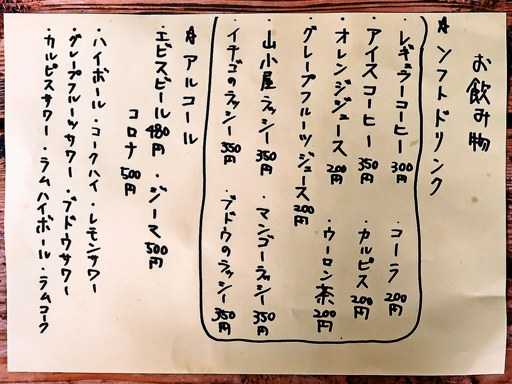 お飲み物
☆ソフトドリンク
・レギュラーコーヒー 300円 ・コーラ 200円
・アイスコーヒー 350円 ・カルピス 200円
・オレンジジュース 200円 ・ウーロン茶 200円
・グレープフルーツジュース 200円
・山小屋ラッシー 350円 ・マンゴーラッシー 350円
・イチゴのラッシー 350円 ・ブドウのラッシー 350円
☆アルコール
・エビスビール 480円 ・ジーマ 500円
コロナ 500円
・ハイボール・コークハイ・レモンサワー
・グレープフルーツサワー・ブドウサワー
・カルピスサワー・ラムハイボール・ラムコーク